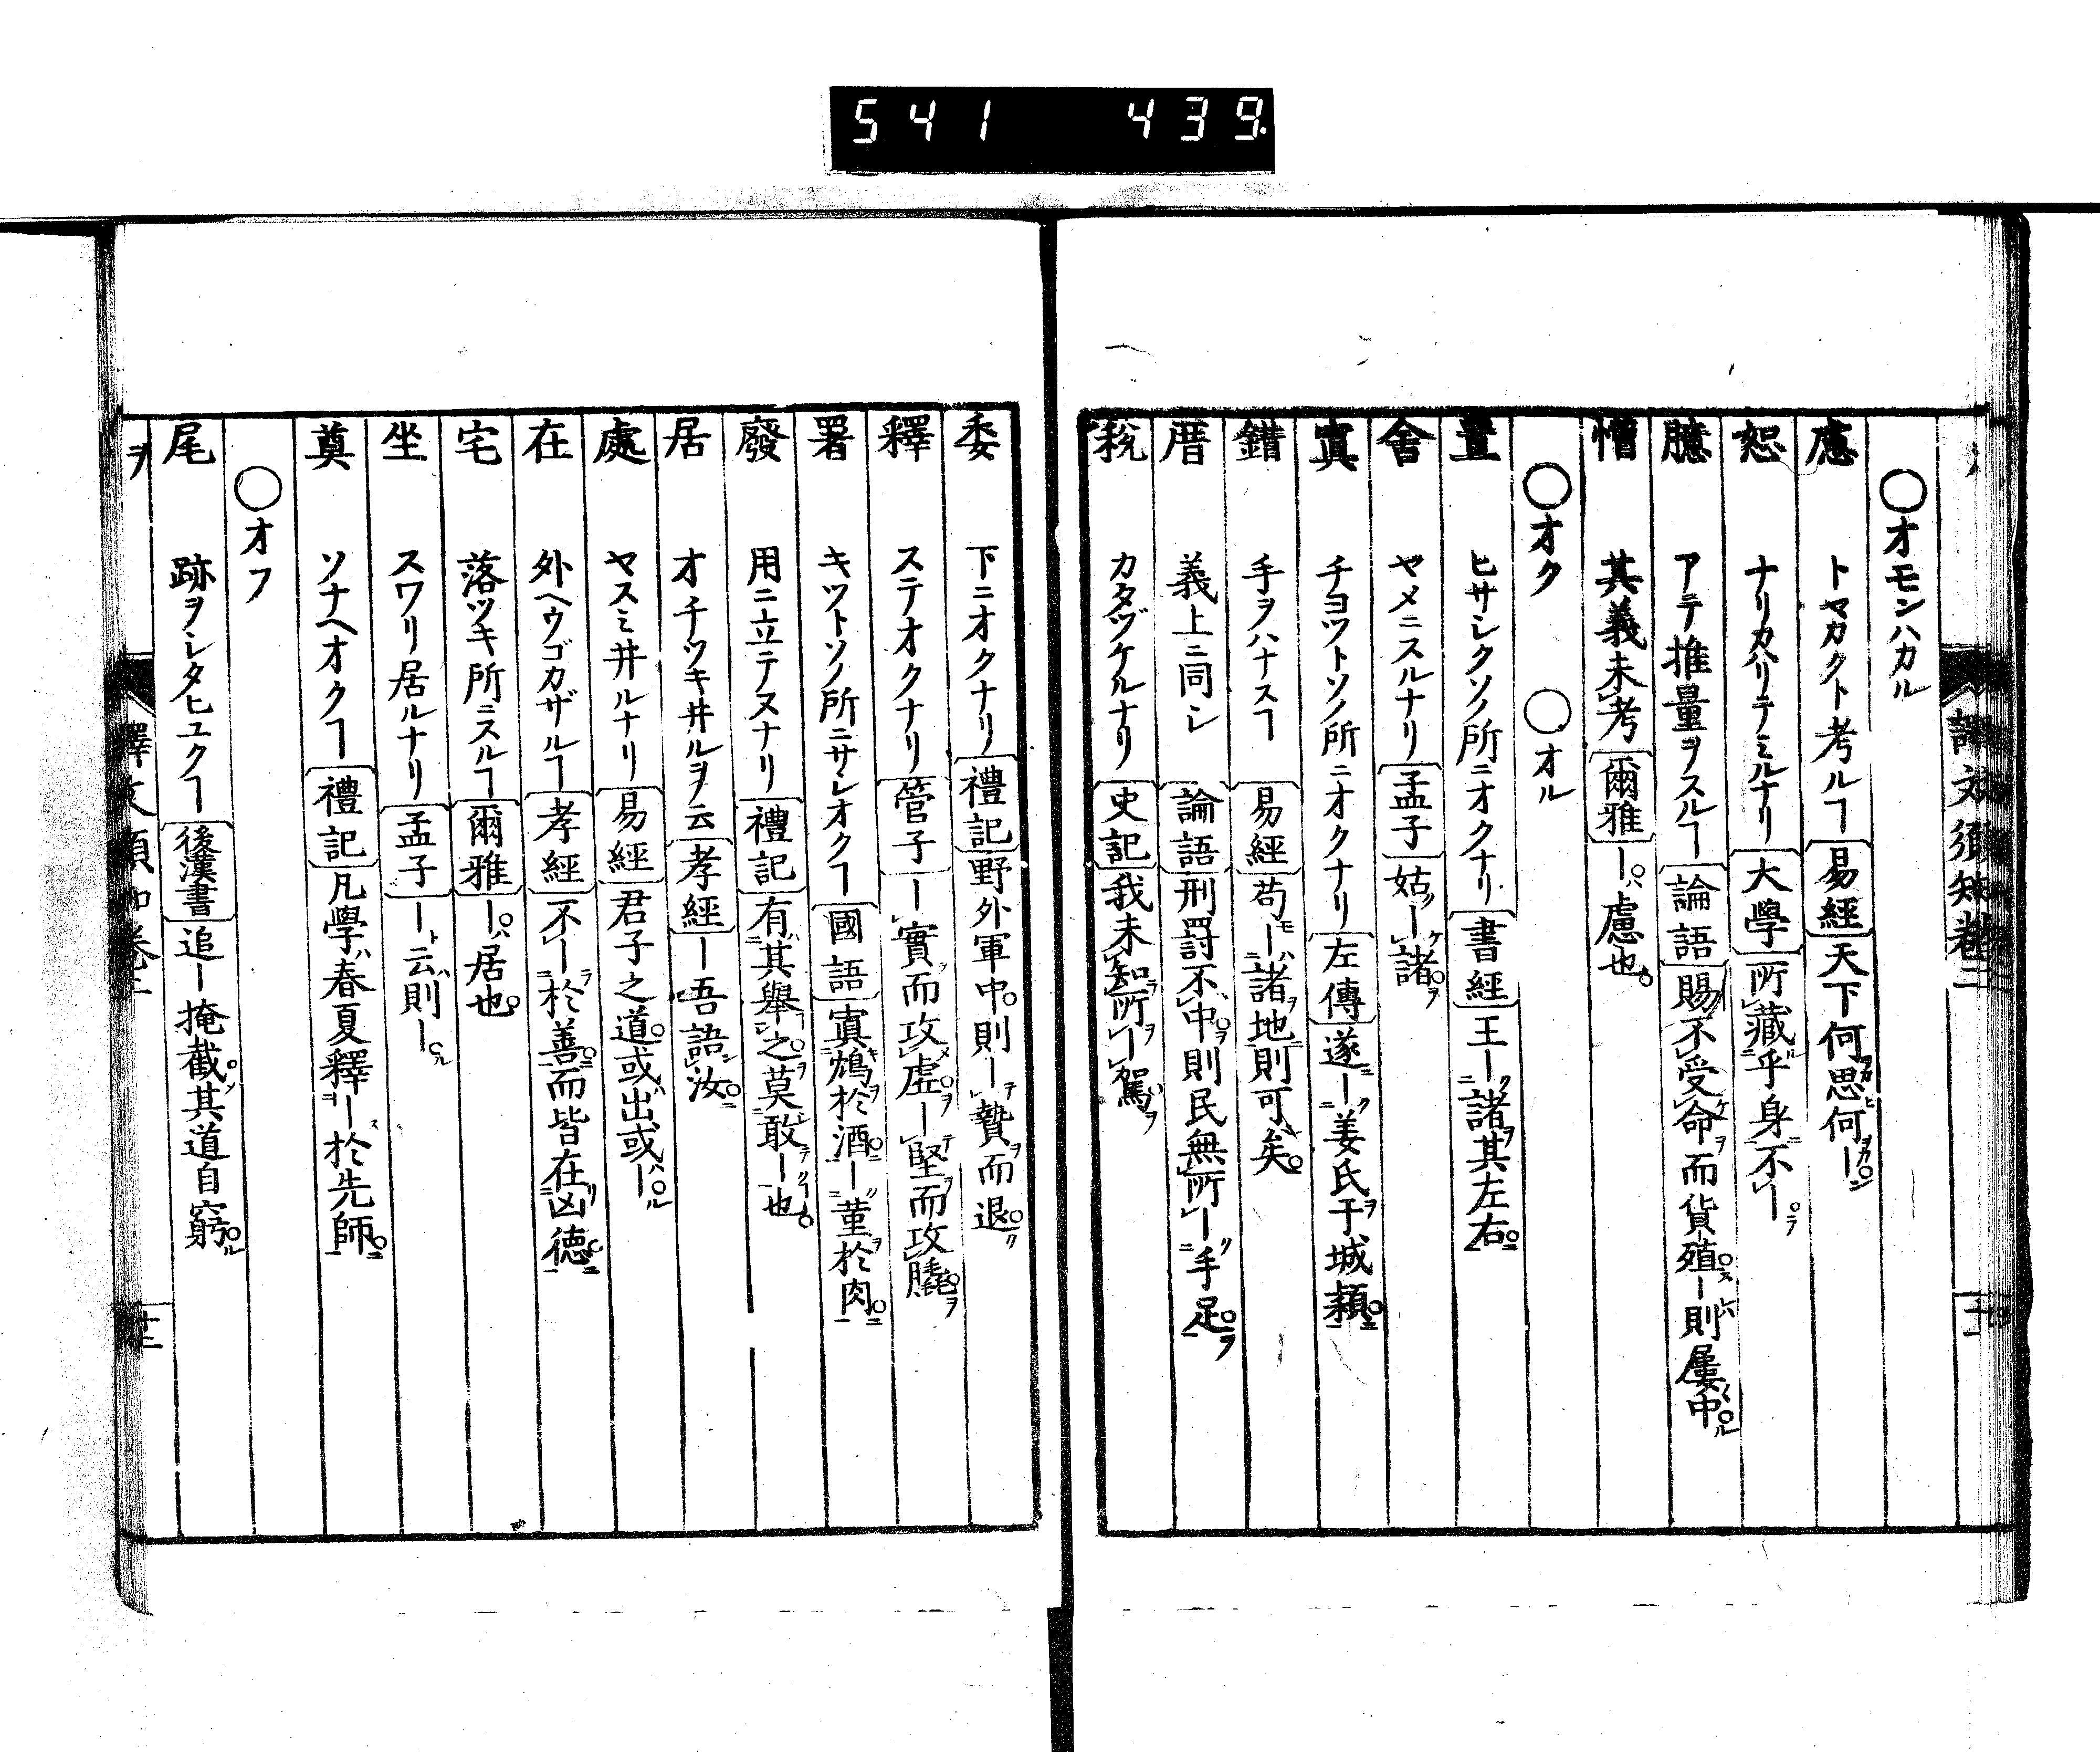 541 439
○オモンハカル
慮 トヤカクト考ルヿ 易經 天下何思何ー
恕 ナリカハリテミルナリ 大學 所藏乎身不ー
臆 アテ推量ヲスルヿ 論語 賜不受命而貨殖ー則屢中
憎 其義未考 爾雅 ー慮也
○オク ○オル
置 ヒサシクソノ所ニオクナリ 書經 王ー諸其左右
舍 ヤメニスルナリ 孟子 姑ー諸
寘 チヨツトソノ所ニオクナリ 左傳 遂ー姜氏于城潁
錯 手ヲハナスヿ 易經 苟ー諸地則可矣
厝 義上ニ同シ 論語 刑罰不中則民無所ー手足
税 カタヅケルナリ 史記 我未知所ー駕
委 下ニオクナリ 禮記 野外軍中則ー贄而退
釋 ステオクナリ 管子 ー實而攻虚ー堅而攻膬
署 キツトソノ所ニサシオクヿ 國語 寘鴆於酒ー菫於肉
廢 用ニ立テヌナリ 禮記 有其舉之莫敢ー也
居 オチツキ井ルヲ云 孝經 ー吾語汝
處 ヤスミ井ルナリ 易經 君子之道或出或ー
在 外ヘウゴカザルヿ 孝經 不ー於善而皆在凶德
宅 落ツキ所ニスルヿ 爾雅 ー居也
坐 スワリ居ルナリ 孟子 ー云則ー
奠 ソナヘオクヿ 禮記 凡學春夏釋ー於先師
○オフ
尾 跡ヲシタヒユクヿ 後漢書 追ー掩截其道自窮
ヲ 譯文須知卷二 十二